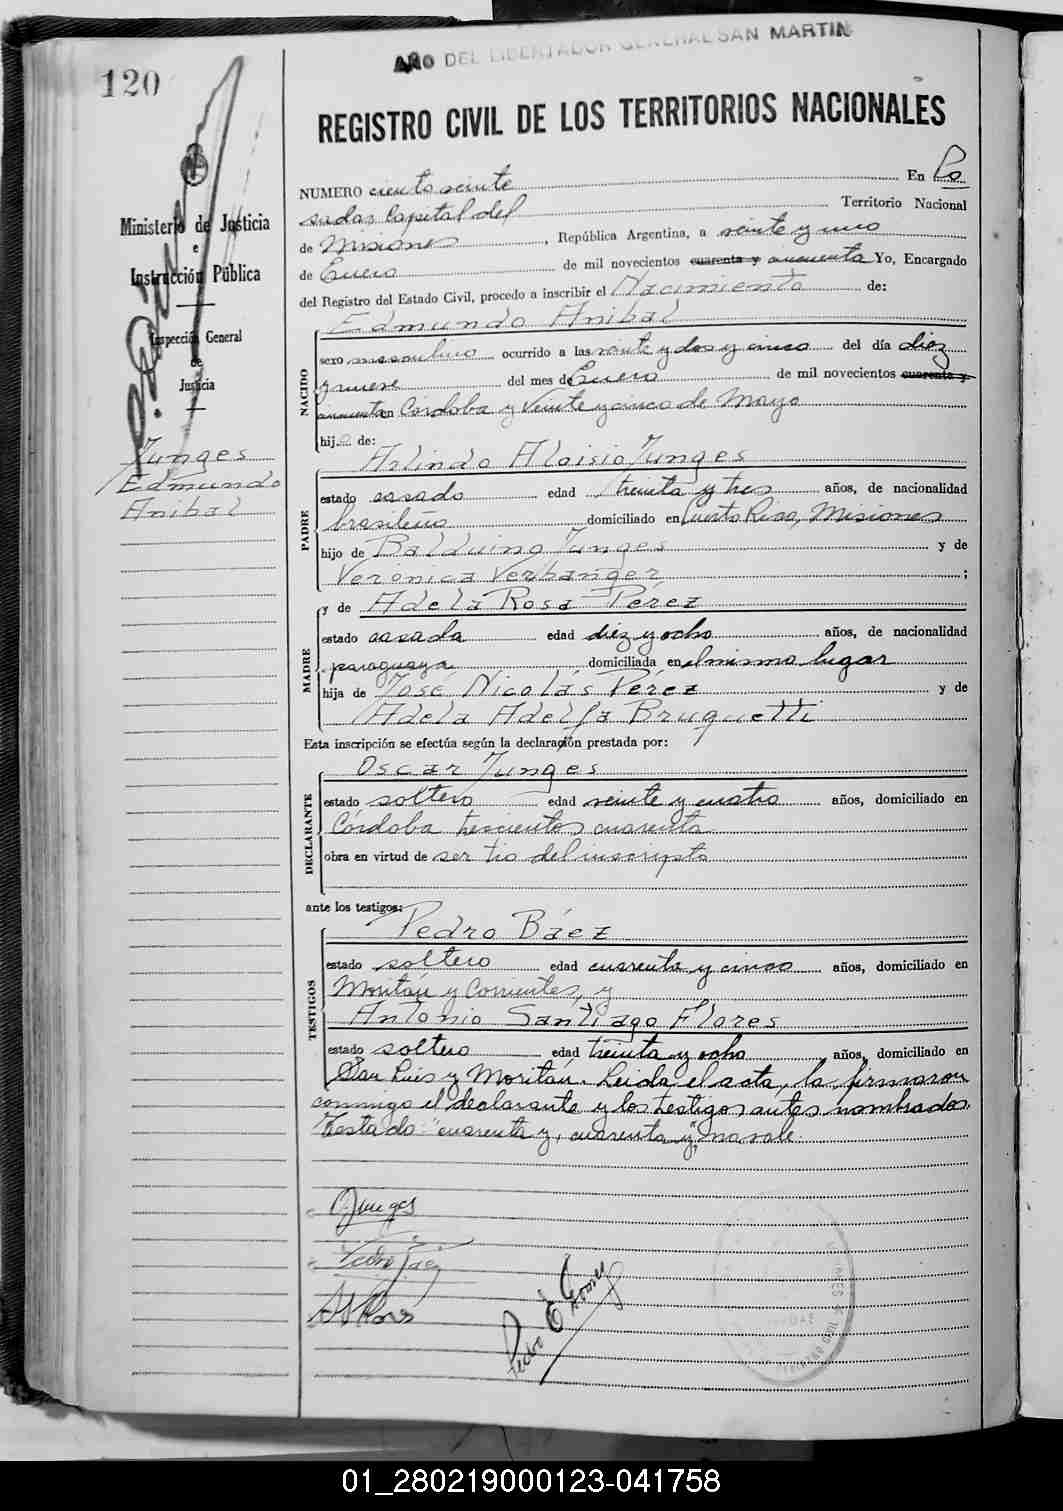 AÑO DEL LIBERTADOR GENERAL SAN MARTIN
120
REGISTRO CIVIL DE LOS TERRITORIOS NACIONALES
Ministerio de Justicia
e
Instrucción Pública
Inspección General
de
Justicia
Junges
Edmundo
Anibal
NUMERO ciento veinte En Po
sadas Capital del Territorio Nacional
de Misiones, República Argentina, a veinte y uno
de Enero de mil novecientos cuarenta y cincuenta Yo, Encargado
del Registro del Estado Civil, procedo a inscribir el Nacimiento de:
Edmundo Anibal
NACIDO
sexo masculino ocurrido a las veinte y dos y cinco del día diez
y nueve del mes de Enero de mil novecientos cuarenta y
cincuenta en Córdoba y Veinte y cinco de Mayo
hijo de:
Arlindo Aloisio Junges
PADRE
estado casado edad treinta y tres años, de nacionalidad
brasileño domiciliado en Puerto Rico, Misiones
hijo de Balduino Junges y de
Verónica Verhanger;
y de Adela Rosa Pérez
MADRE
estado casada edad diez y ocho años, de nacionalidad
paraguaya domiciliada en el mismo lugar
hija de José Nicolás Pérez y de
Adela Adelfa Bruquetti
Esta inscripción se efectúa según la declaración prestada por:
Oscar Junges
DECLARANTE
estado soltero edad veinte y cuatro años, domiciliado en
Córdoba trescientos cuarenta
obra en virtud de ser tio del inscripto
ante los testigos:
Pedro Báez
TESTIGOS
estado soltero edad cuarenta y cinco años, domiciliado en
Moritán y Corrientes, y
Antonio Santiago Flores
estado soltero edad treinta y ocho años, domiciliado en
San Luis y Moritán. Leida el acta, la firmaron
conmigo el declarante y los testigos antes nombrados.
Testado: "cuarenta y, cuarenta y", no vale.
OJunges
Pedro Báez
01_280219000123-041758